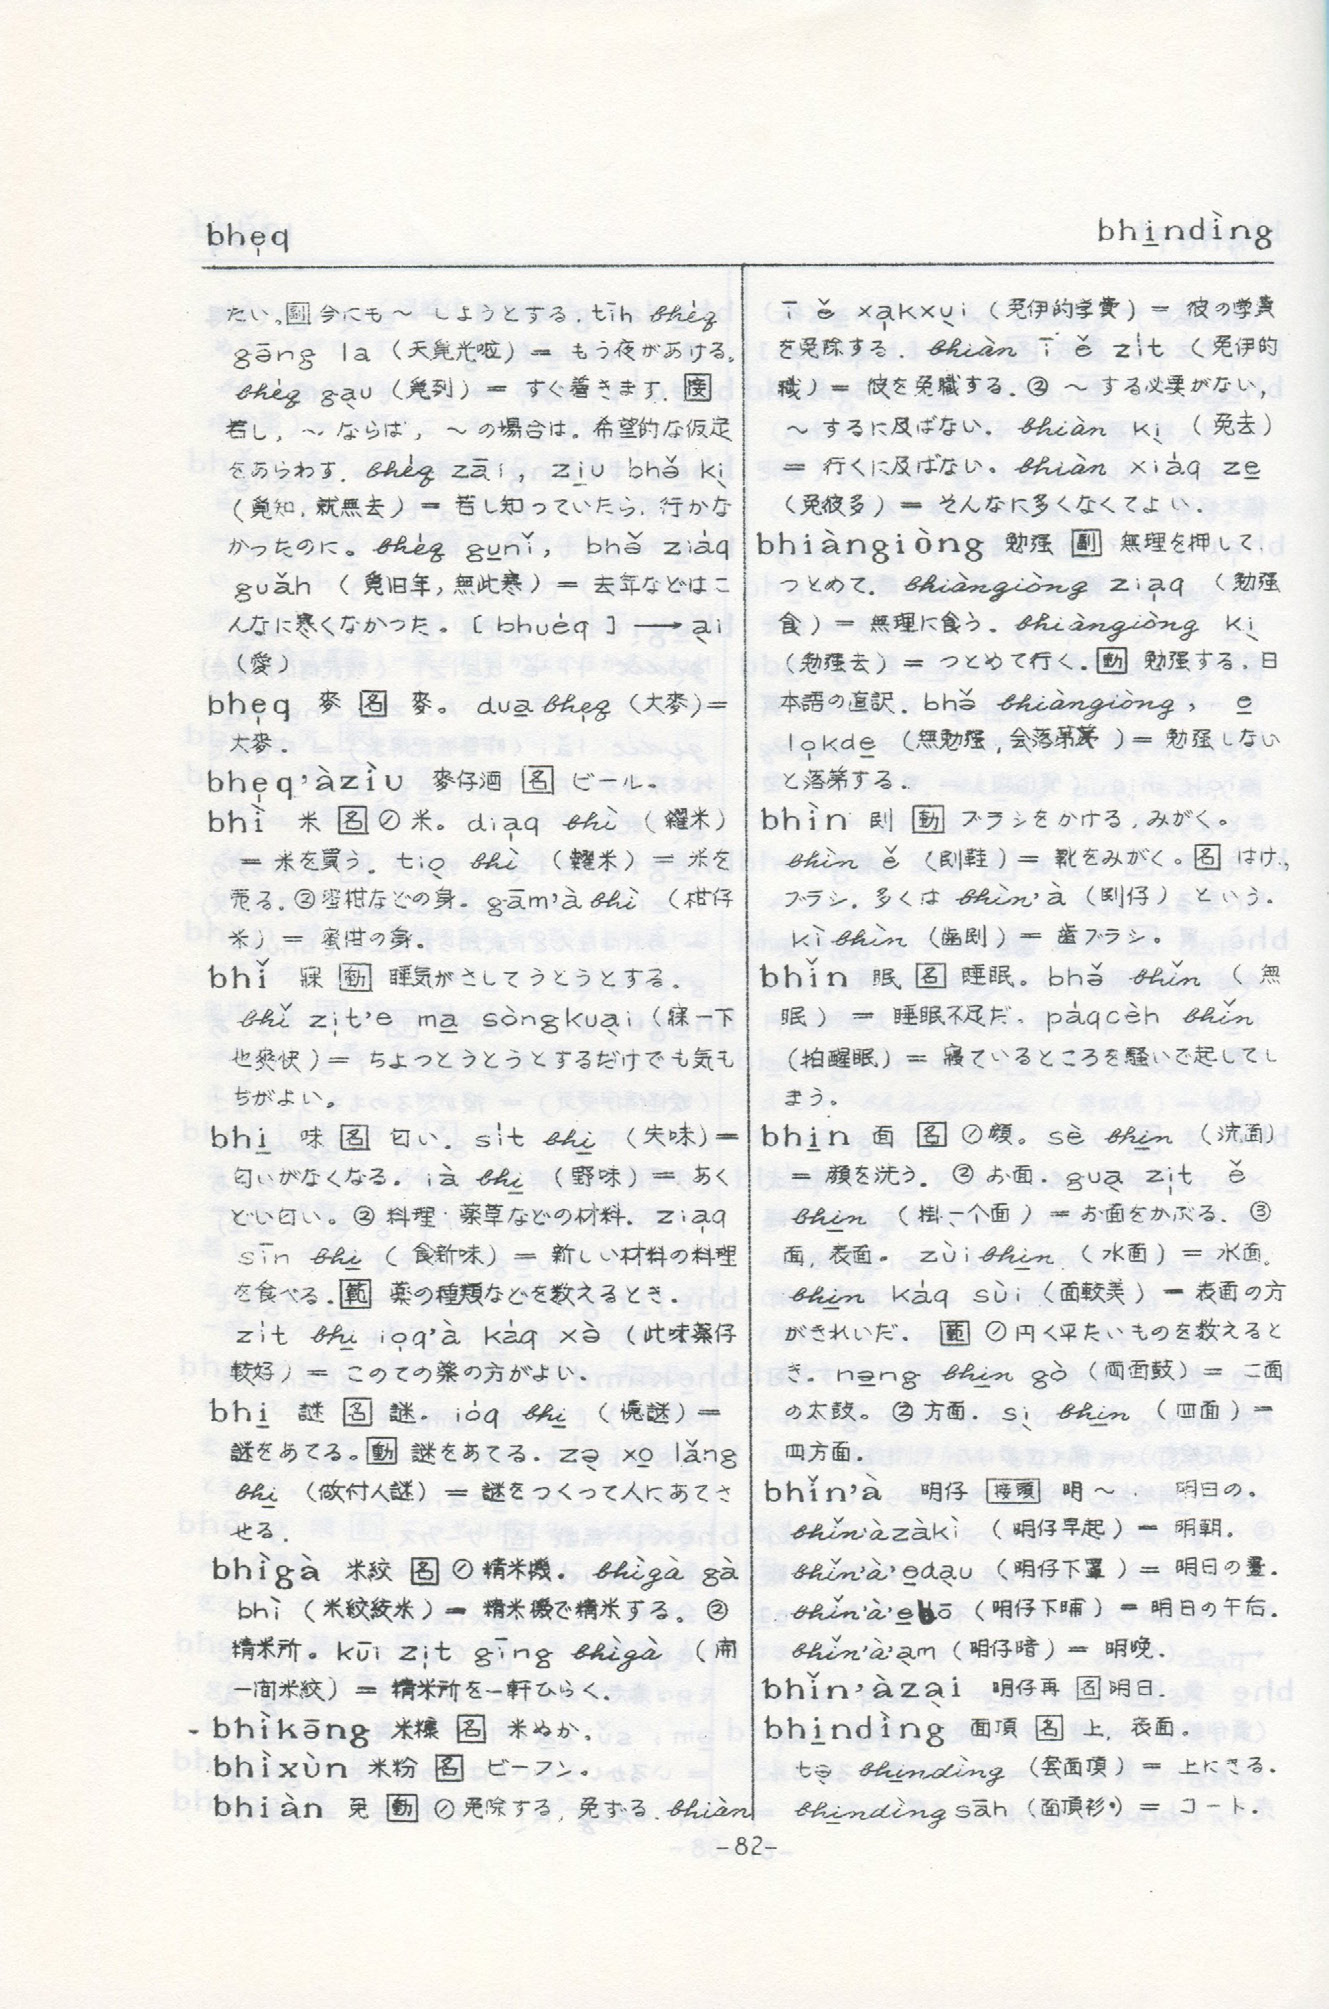 bhẹq
bhi̱ndìng
たい。副 今にも〜しようとする. tīh bhėq
gāng la（天覓光啦）= もう夜があける。
bhėq gạu（覓到）= すぐ着きます. 接
若し, 〜ならば, 〜の場合は. 希望的な仮定
をあらわす. bhėq zāi, zi̱u bhə̌ kị
（覓知, 就無去）= 若し知っていたら, 行かな
かったのに。bhėq gu̱nǐ, bhə̌ ziáq
guǎh（覓旧年, 無此寒）= 去年などはこ
んなに寒くなかった。[ bhuéq ] → ại
（愛）
bhẹq 麥 名 麥。dua̱ bhẹq（大麥）=
大麥.
bhẹq'àziù 麥仔酒 名 ビール。
bhì 米 名 ① 米。diạq bhì（糴米）
= 米を買う. tiọ bhì（糶米）= 米を
売る. ② 蜜柑などの身。gām'à bhì（柑仔
米）= 蜜柑の身。
bhǐ 寐 動 睡気がさしてうとうとする.
bhǐ zịt'e ma̱ sòngkuại（寐一下
也爽快）= ちょっとうとうとするだけでも気も
ちがよい。
bhi̱ 味 名 匂い. sit bhi̱（失味）=
匂いがなくなる. ià bhi̱（野味）= あく
どい匂い。② 料理・薬草などの材料. ziạq
sīn bhi̱（食新味）= 新しい材料の料理
を食べる. 範 薬の種類などを数えるとき.
zit bhi̱ iọq'à káq xə̀（此味薬仔
較好）= このての薬の方がよい.
bhi̱ 謎 名 謎. ióq bhi̱（憶謎）=
謎をあてる。動 謎をあてる. zə̣ xo̱ lǎng
bhi̱（做付人謎）= 謎をつくって人にあてさ
せる.
bhìgà 米絞 名 ① 精米機. bhìgà gà
bhì（米絞絞米）= 精米機で精米する。②
精米所。kūi zịt gīng bhìgà（開
一間米絞）= 精米所を一軒ひらく.
bhìkāng 米糠 名 米ぬか.
bhìxùn 米粉 名 ビーフン。
bhiàn 免 動 ① 免除する, 免ずる. bhiàn
ī ě xạkxụi（免伊的学費）= 彼の学費
を免除する. bhiàn ī ě zit（免伊的
職）= 彼を免職する. ② 〜する必要がない,
〜するに及ばない. bhiàn kị（免去）
= 行くに及ばない。bhiàn xiáq ze̱
（免彼多）= そんなに多くなくてよい.
bhiàngiòng 勉强 副 無理を押して
つとめて. bhiàngiòng ziạq（勉强
食）= 無理に食う. bhiàngiòng kị
（勉强去）= つとめて行く. 動 勉强する. 日
本語の直訳. bhə̌ bhiàngiòng, e̱
lọkde̱（無勉强, 会落第）= 勉强しない
と落第する.
bhìn 刷 動 ブラシをかける, みがく。
bhìn ě（刷鞋）= 靴をみがく。名 はけ,
ブラシ. 多くは bhìn'à（刷仔）という.
kì bhìn（歯刷）= 歯ブラシ。
bhǐn 眠 名 睡眠。bhə̌ bhǐn（無
眠）= 睡眠不足だ. páqcèh bhǐn
（拍醒眠）= 寝ているところを騒いで起してし
まう.
bhi̱n 面 名 ① 顔。sè bhi̱n（洗面）
= 顔を洗う. ② お面. gụa zịt ě
bhi̱n（掛一个面）= お面をかぶる. ③
面, 表面. zùi bhi̱n（水面）= 水面.
bhi̱n káq sùi（面較美）= 表面の方
がきれいだ. 範 ① 円く平たいものを数えると
き. nə̱ng bhi̱n gò（両面鼓）= 二面
の太鼓. ② 方面. sị bhi̱n（四面）=
四方面.
bhǐn'à 明仔 接頭 明〜 明日の.
bhǐn'àzàkì（明仔早起）= 明朝.
bhǐn'à'e̱dạu（明仔下罩）= 明日の晝.
bhǐn'à'e̱bō（明仔下晡）= 明日の午后.
bhǐn'à'ạm（明仔暗）= 明晩.
bhǐn'àzại 明仔再 名 明日.
bhi̱ndìng 面頂 名 上, 表面.
tə̣ bhi̱ndìng（套面頂）= 上にきる.
bhi̱ndìng sāh（面頂衫）= コート.
-82-